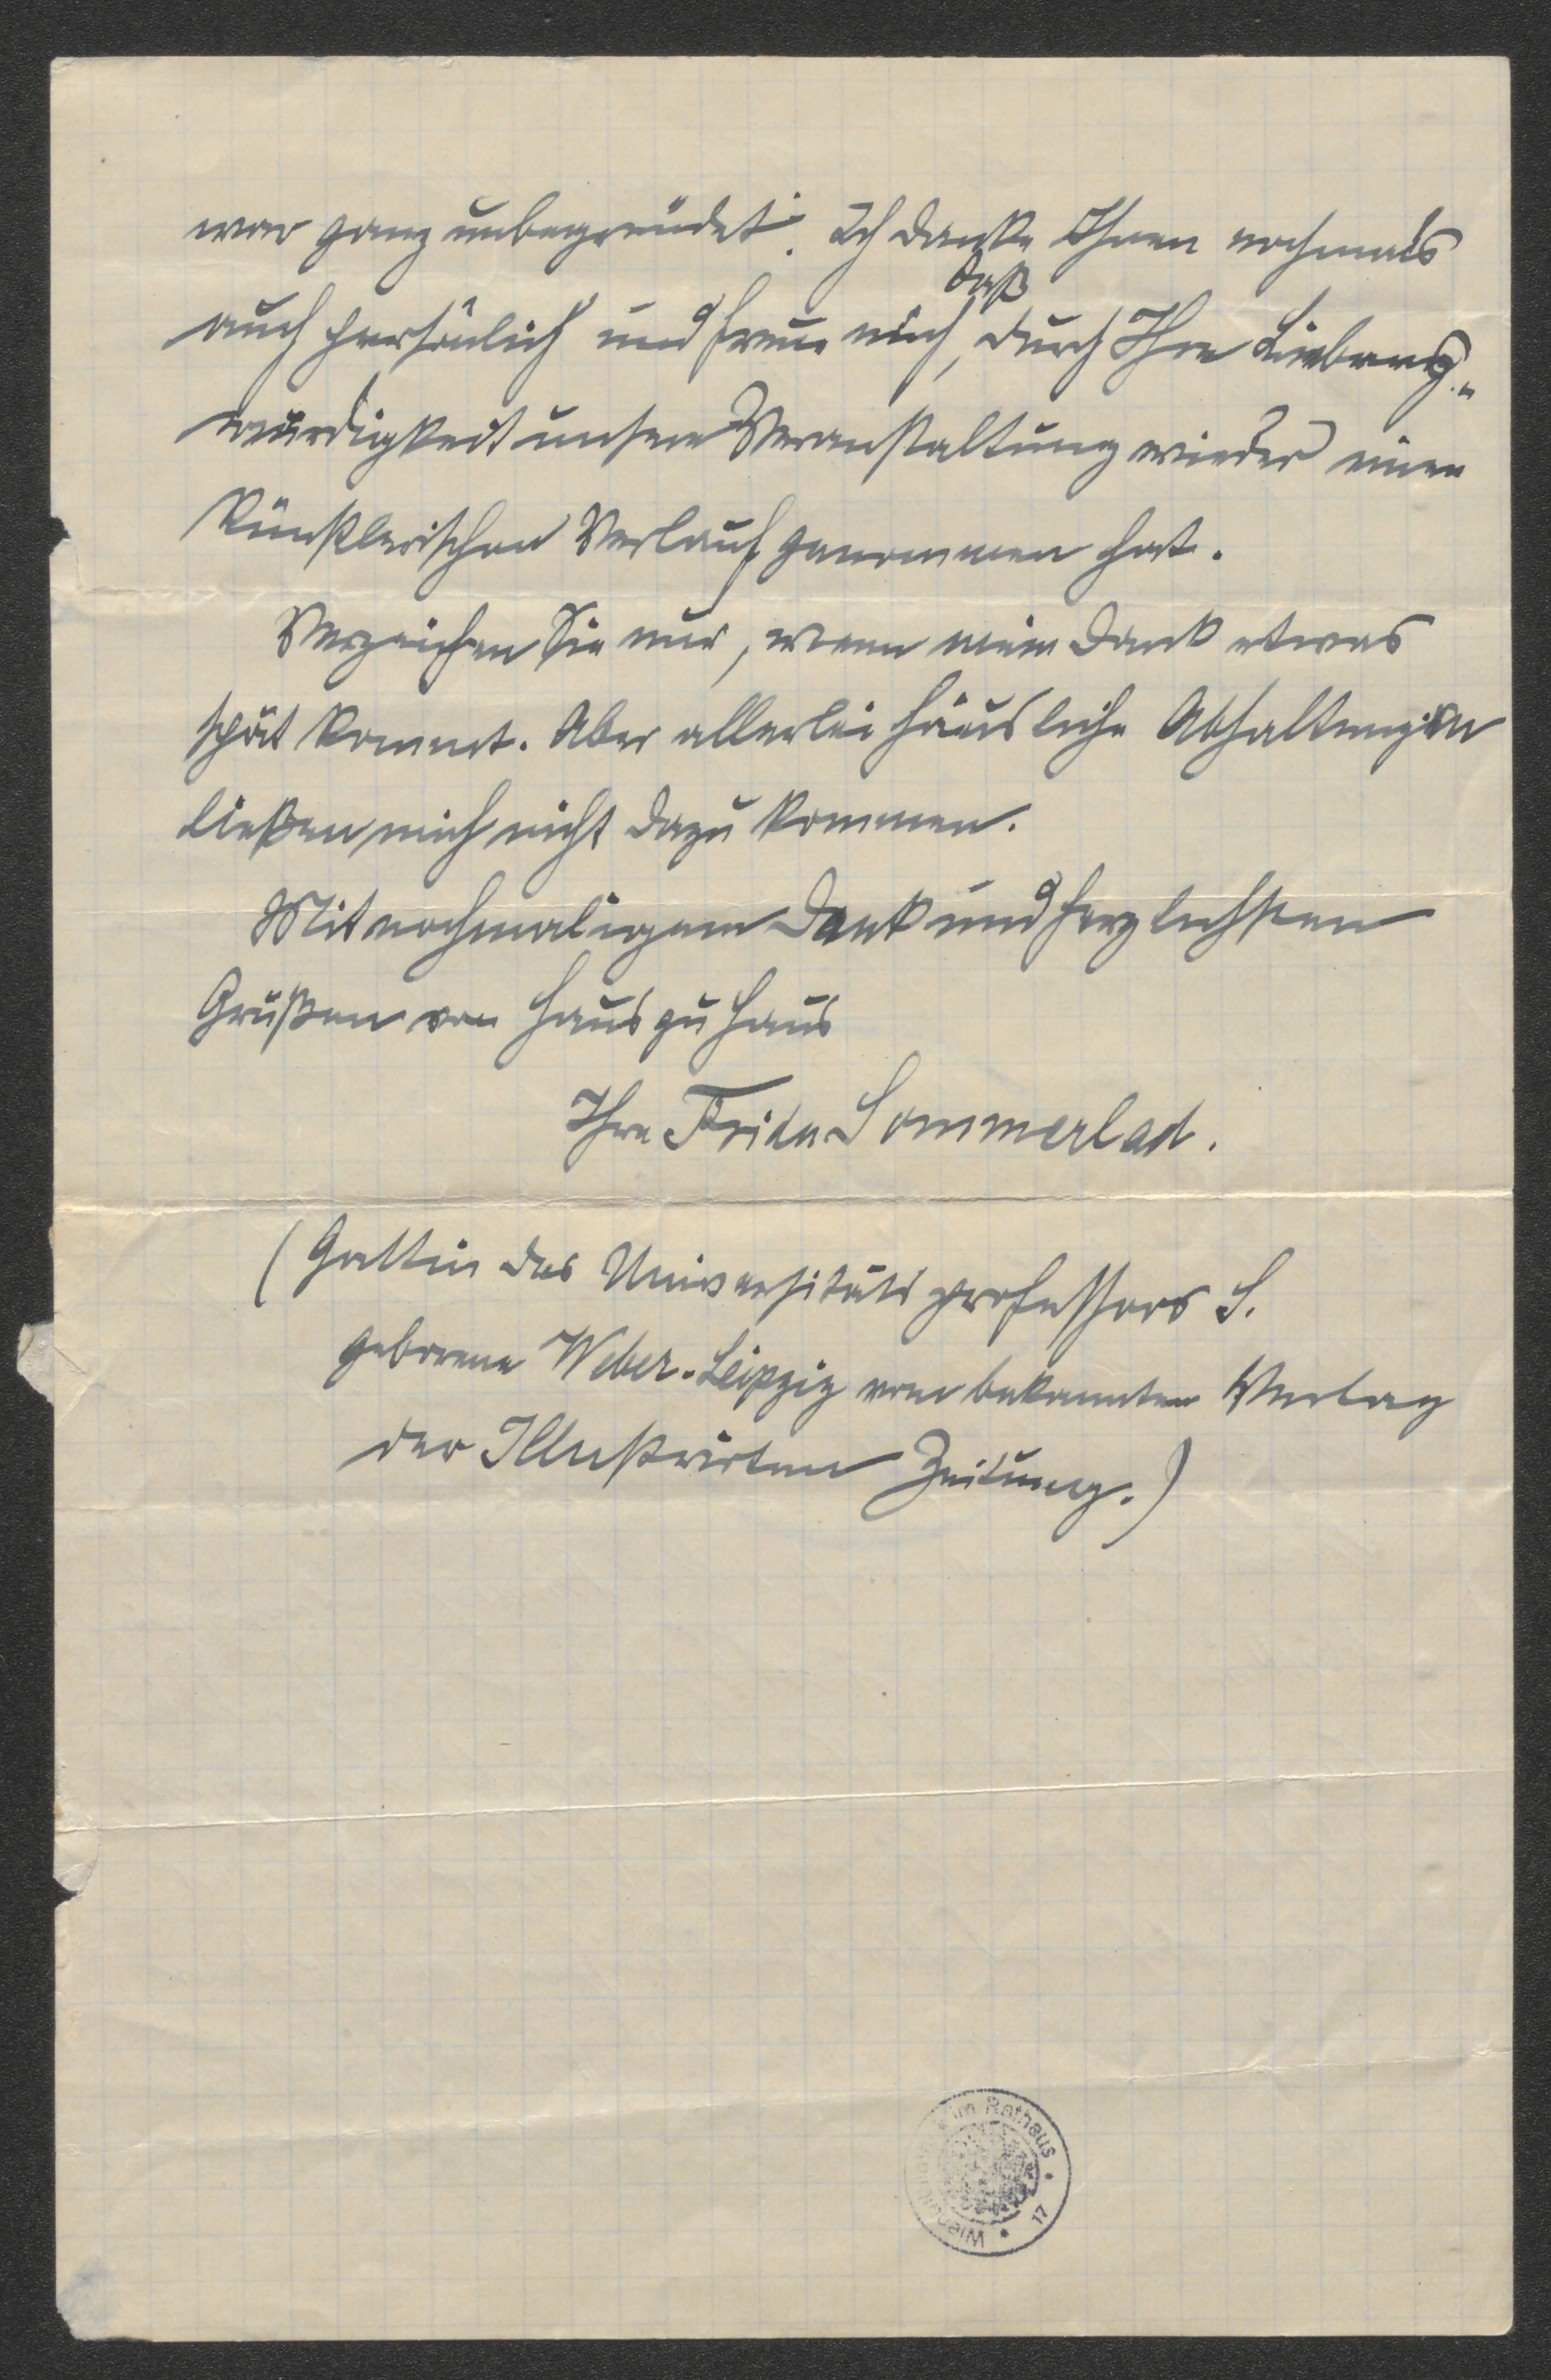 war ganz unbegründet. Ich danke Ihnen nochmals
daß
auch persönlich und freue mich, durch Ihre Liebens-
würdigkeit unsere Veranstaltung wieder einen
künstlerischen Verlauf genommen hat.
Verzeihen Sie nur, wenn mein Dank etwas
spät kommt. Aber allerlei häusliche Abhaltungen
ließen mich nicht dazu kommen.
Mit nochmaligem Dank und herzlichsten
Grüßen von Haus zu Haus
Ihre Frida Sommerlad.
(Gattin des Universitätsprofessors S.
geborene Weber-Leipzig vom bekannten Verlag
der Illustrirten Zeitung.)
im Rathaus • 17 •